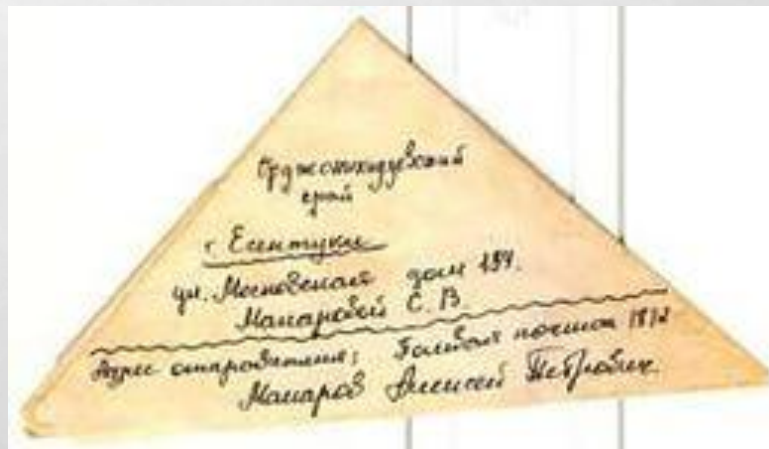 Орджоникидзевский
край
г. Ессентуки
ул. Московская дом 134.
Макаровой С. В.
Адрес отправителя: Полевая почта 1812
Макаров Алексей Петрович.